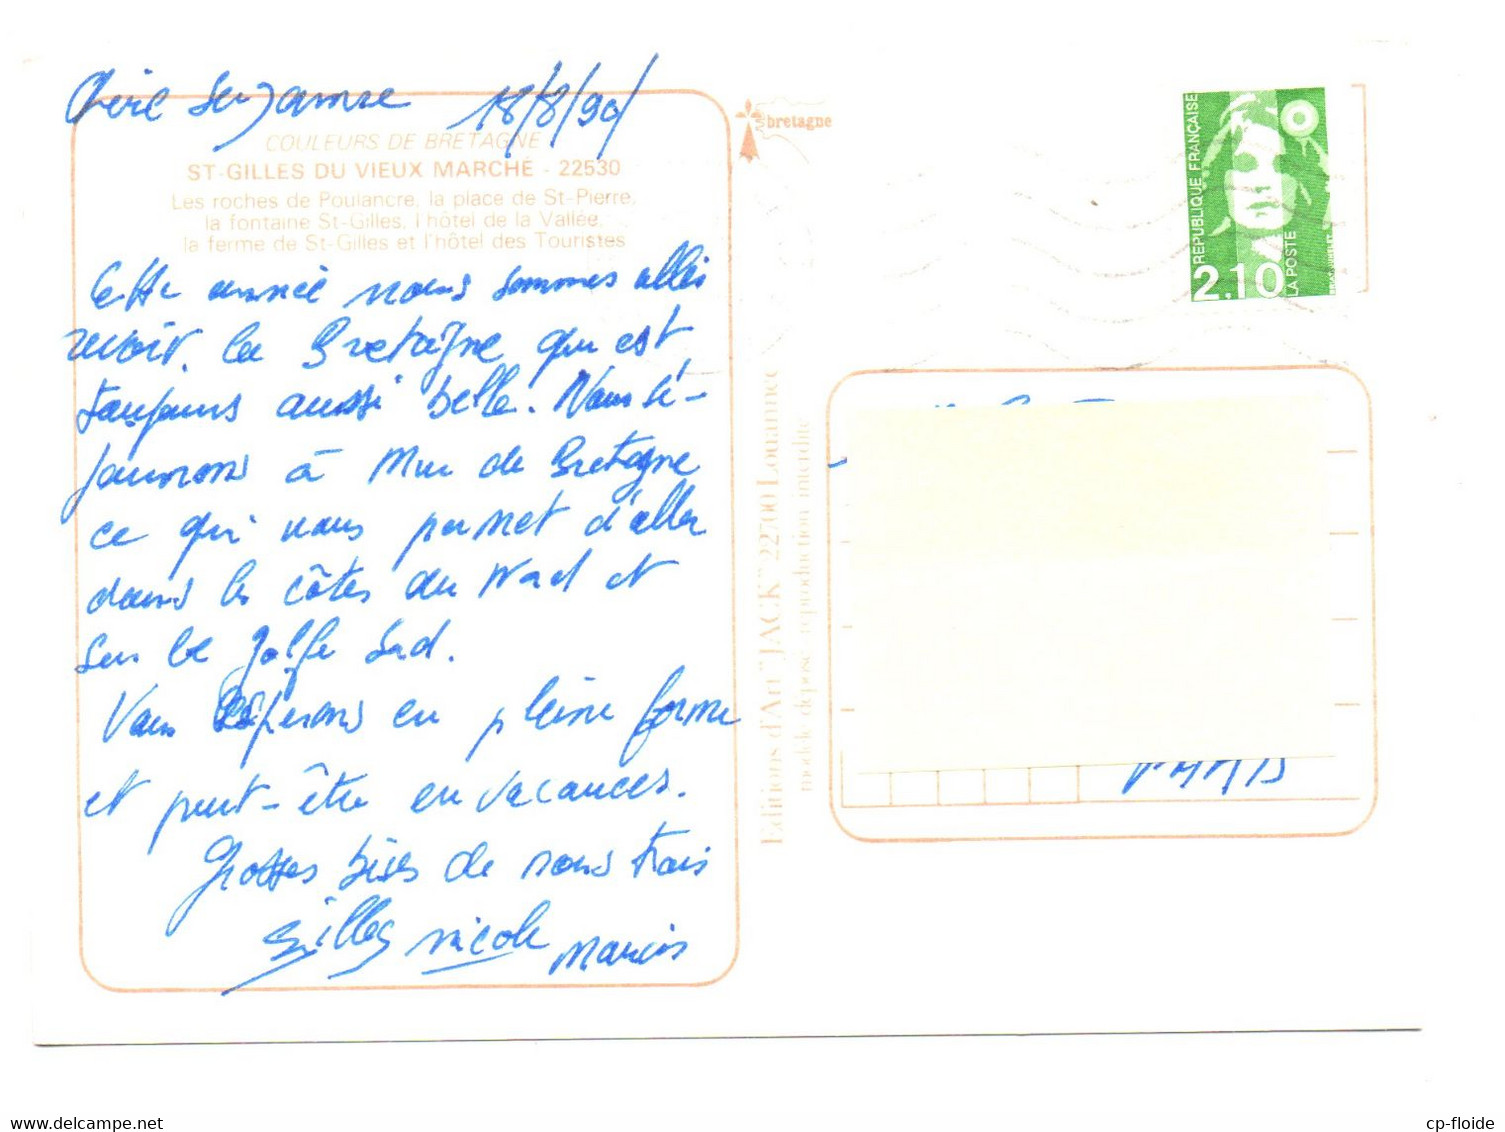 Chère Suzanne 18/8/90
COULEURS DE BRETAGNE
ST-GILLES DU VIEUX MARCHÉ - 22530
Les roches de Poulancre, la place de St-Pierre,
la fontaine St-Gilles, l'hôtel de la Vallée,
la ferme de St-Gilles et l'hôtel des Touristes
Cette année nous sommes allés
revoir la Bretagne qui est
toujours aussi belle. Nous sé-
journons à Mur de Bretagne
ce qui nous permet d'aller
dans les côtes du Nord et
sur le golfe Sud.
Vous espérons en pleine forme
et peut-être en vacances.
Grosses bises de nous trois
Gilles Nicole
bretagne
Editions d'Art "JACK" 22700 Louannec
modèle déposé reproduction interdite
RÉPUBLIQUE FRANÇAISE
LA POSTE
2,10
PARIS
www.delcampe.net
cp-floide